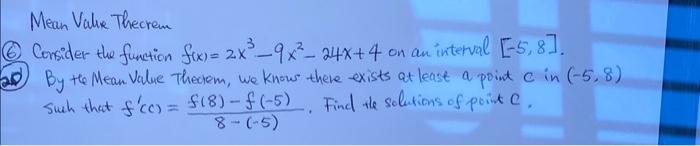 Mean Value Thecrem
⑥ Consider the function f(x) = 2x³ – 9x² – 24x + 4 on an interval [-5, 8].
20 By the Mean Value Theorem, we know there exists at least a point c in (-5, 8)
Such that f'(c) = f(8) – f(-5) / 8 – (-5) . Find the solutions of point C.